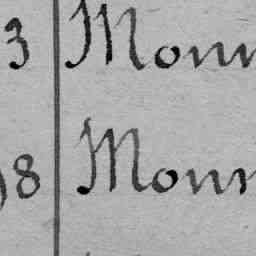 3 Monn
8 Monn